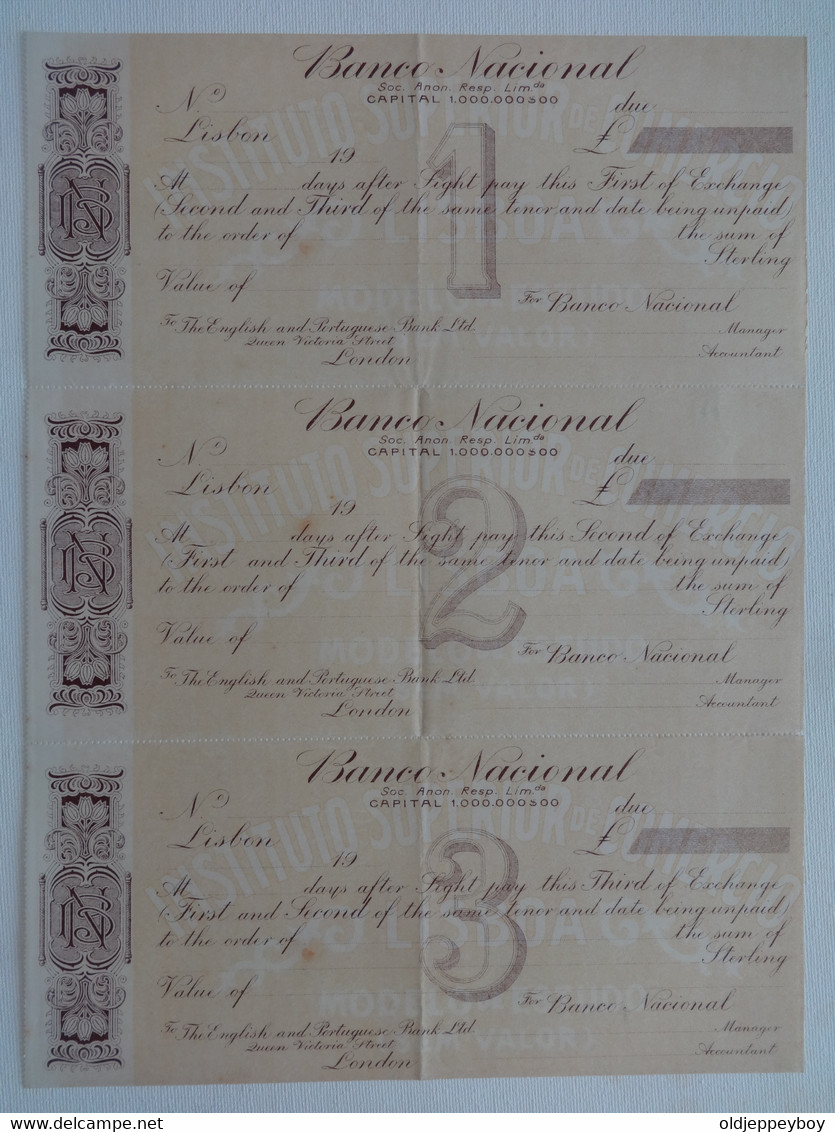 Banco Nacional
Soc. Anon. Resp. Lim.da
CAPITAL 1.000.000$00
N.o due
Lisbon £
19
1
At days after Sight pay this First of Exchange
(Second and Third of the same tenor and date being unpaid)
to the order of the sum of
Sterling
Value of
For Banco Nacional
To The English and Portuguese Bank Ltd. Manager
Queen Victoria Street Accountant
London
INSTITUTO SUPERIOR DE COMERCIO
LISBOA
Banco Nacional
Soc. Anon. Resp. Lim.da
CAPITAL 1.000.000$00
N.o due
Lisbon £
19
2
At days after Sight pay this Second of Exchange
(First and Third of the same tenor and date being unpaid)
to the order of the sum of
Sterling
Value of
For Banco Nacional
To The English and Portuguese Bank Ltd. Manager
Queen Victoria Street Accountant
London
INSTITUTO SUPERIOR DE COMERCIO
LISBOA
Banco Nacional
Soc. Anon. Resp. Lim.da
CAPITAL 1.000.000$00
N.o due
Lisbon £
19
3
At days after Sight pay this Third of Exchange
(First and Second of the same tenor and date being unpaid)
to the order of the sum of
Sterling
Value of
For Banco Nacional
To The English and Portuguese Bank Ltd. Manager
Queen Victoria Street Accountant
London
INSTITUTO SUPERIOR DE COMERCIO
LISBOA
VALOR)
DELCAMPE.NET
oldjeppeyboy